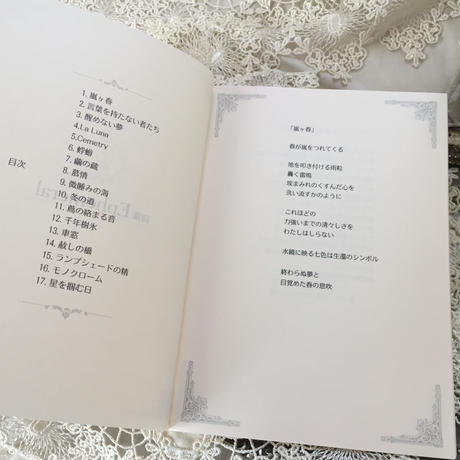 目次
1. 嵐ヶ春
2. 言葉を持たない者たち
3. 醒めない夢
4.La Luna
5.Cemetry
6. 蜉蝣
7. 繭の蔵
8. 慕情
9. 微睡みの海
10. 冬の道
11. 蔦の絡まる音
12. 千年樹氷
13. 車窓
14. 赦しの橋
15. ランプシェードの精
16. モノクローム
17. 星を掴む日
「嵐ヶ春」
春が嵐をつれてくる
地を叩き付ける雨粒
轟く雷鳴
埃まみれのくすんだ心を
洗い流すかのように
これほどの
力強いまでの清々しさを
わたしはしらない
水鏡に映る七色は生還のシンボル
終わらぬ夢と
目覚めた春の息吹